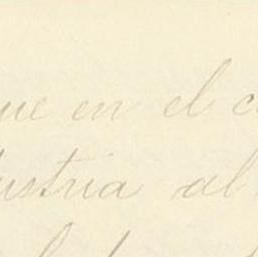 que en el c
ustria al